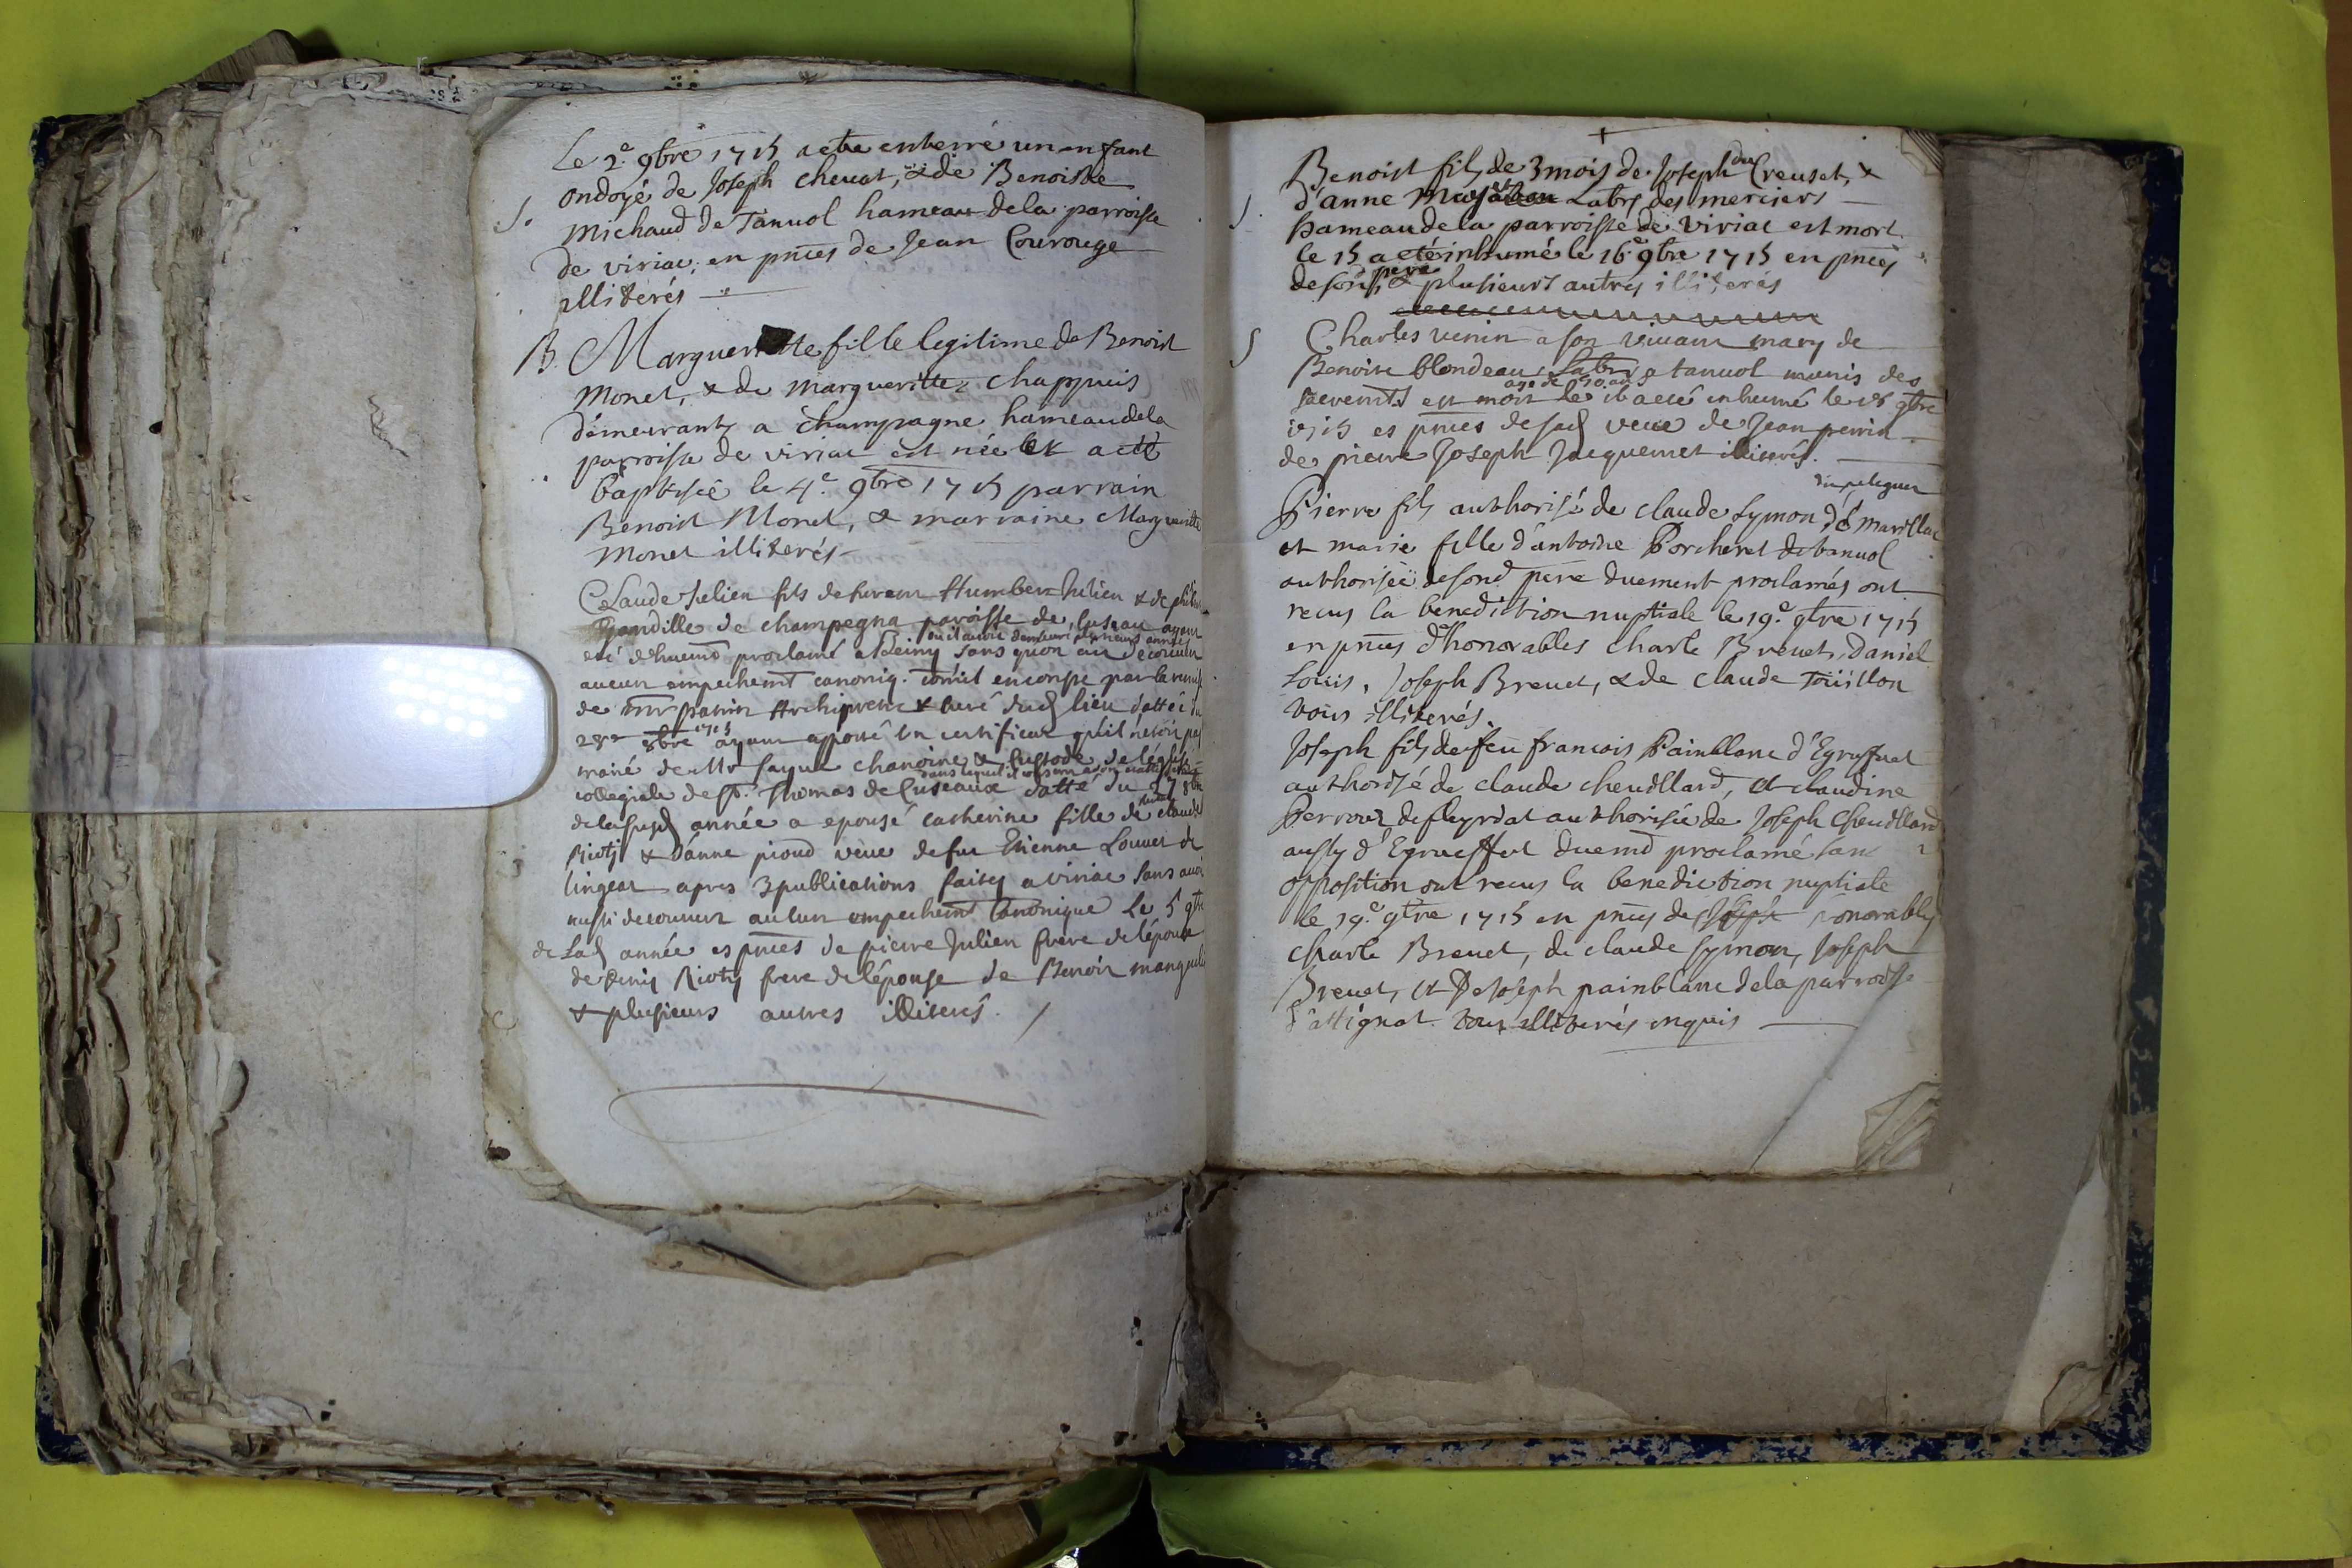 Le 2e. 9bre 1715 a ete enterré un enfant
S. ondoyé de Joseph chevat, & de Benoiste
Michaud de Tanuol hameau de la parroisse
de viriac, en pnces de Jean Courouge
illiterés
B. Margueritte fille legitime de Benoist
Monet, & de Margueritte chappuis
demeurants a champagne hameau de la
parroisse de viriac est née et a eté
baptisée le 4e. 9bre 1715 parrain
Benoist Monet, & marraine Margueritte
Monet illiterés
Claude Julien fils de Humbert Julien & de
de champagna paroisse de Cuseau ayant
ou il avoit demeuré plusieurs années
eté dhuemt proclamé a sans quon ait decouvert
aucun empechemt canoniq. par
de Mr Archipretre & curé dud lieu datté du
28e 8bre 1715 ayant apporté un certificat qu'il n'etoit pas
marié de Mr chanoine & custode de l'eglise
collegiale de St. Thomas de Cuseaux datté du 27 8bre
de la susd année a epousé catherine fille de claude
& d'anne pioud veue de feu Etienne Louvet de
lingeat apres 3 publications faites a viriac sans avoir
aussi decouvert aucun empechemt canonique le 5 9bre
de lad année es pnces de pierre Julien frere de l'epoux
de Denis frere de l'epouse de Benoit
& plusieurs autres illiterés.
Benoist fils de 3 mois de Joseph du Creuset, &
S. d'anne Labrs des merciers
hameau de la parroisse de viriac est mort
le 15 a eté inhumé le 16e 9bre 1715 en pnces
de son pere & plusieurs autres illiterés
S Charles venin a son vivant mary de
Benoite blondeau Labr a tanuol munis des
agé de 50 ans
sacremts est mort le a eté inhumé le 9bre
1715 es pnces de sad veue de Jean perrin
de pierre Joseph Jacquemet illiterés.
Pierre fils authorisé de claude Symon de marillac
et marie fille d'antoine Porcheret de tanuol
authorisée de sond pere duement proclamés ont
recus la benediction nuptiale le 19e. 9bre 1715
en pnces d'honorables charle Brevet, Daniel
Louis, Joseph Brevet, & de claude Toüillon
tous illiterés.
Joseph fils de feu francois Painblanc d'Egreffuet
authorisé de claude chevillard, et claudine
Perroux de fleyriat authorisée de Joseph Chevillard
aussy d'Egreffet duemt proclamé sans
opposition ont recus la benediction nuptiale
le 19e. 9bre 1715 en pnces de honorables
charle Brevet, de claude symon, Joseph
Brevet, et De Joseph painblanc de la parroisse
d'attignat. tous illiterés enquis